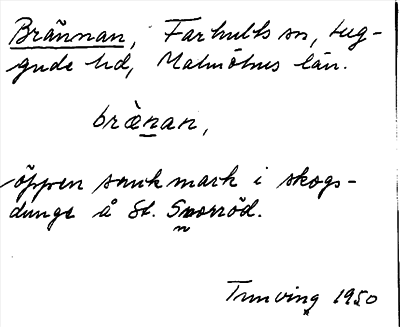 Brännan, Farhults sn, Lug-
gude hd, Malmöhus län.
brä̀nan,
öppen sank mark i skogs-
dunge å St. Snorröd.
Tunving 1950